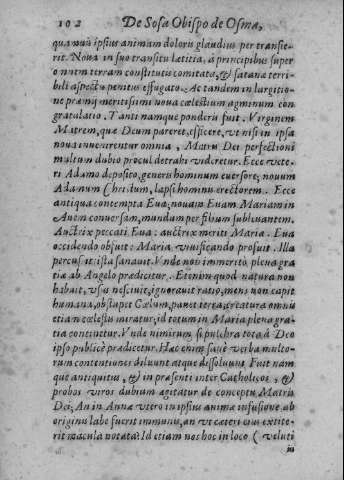 102 De Sosa Obispo de Osma,
quamuis ipsius animam doloris glaudius per transie-
rit. Noua in suo transitu lætitia, a principibus super
o num terram constitutis comitato, & satanæ terri-
bili aspectu penitus effugato. Ac tandem in largitio-
ne præmij meritissimi noua cælestium agminum con
gratulatio. Tanti namque ponderis fuit. Virginem
Matrem, quæ Deum pareret, efficere, vt nisi in ipsa
noua inuenirentur omnia, Matri Dei perfectioni
multum dubio procul detrahi videretur. Ecce vete-
ri Adamo deposito, generis hominum euersore; nouum
Adamum Christum, lapsi hominis erectorem. Ecce
antiqua contempta Eua; nouam Euam Mariam in
Auem conuersam, mundum per filium subleuantem.
Auctrix peccati Eua: auctrix meriti Maria. Eua
occidendo obfuit: Maria, viuificando profuit. Illa
percussit: ista sanauit. Vnde non immeritò plena gra-
tiæ ab Angelo prædicitur. Etenim quod natura non
habuit, vsus nesciuit, ignorauit ratio, mens non capit
humana, obstupet Cælum, pauet terra, creatura omnis
etiam cælestis miratur, id totum in Maria plena gra-
tia continetur. Vnde nimirum si pulchra tota à Deo
ipso publicè prædicetur. Hæc enim suaue verba multo-
rum contentiones diluunt atque dissoluunt. Fuit nam
que antiquitus, & in præsenti inter Catholicos, &
probos viros dubium agitatur de conceptu Matris
Dei; An in Annæ vtero in ipsius animæ infusione, ab
originis labe fuerit immunis, an vt cæteri eius extite-
rit macula notata? Id etiam nos hoc in loco (veluti
in